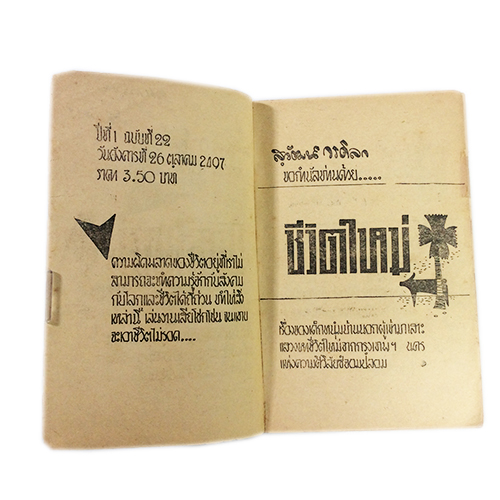 ปีที่ 1 ฉบับที่ 22
วันอังคารที่ 26 ตุลาคม 2407
ราคา 3.50 บาท
ความผิดพลาดของชีวิตอยู่ที่เราไม่
สามารถจะทำความรู้จักกับสังคม
กับโลกและชีวิตได้ถี่ถ้วน
เหล่านี้ เล่นงานเสียโชกโชน จนแทบ
จะเอาชีวิตไม่รอด....
สุวัฒน์ วรดิลก
ขอกำนัลท่านด้วย.....
ชีวิตใหม่
เรื่องของเด็กหนุ่มบ้านนอกผู้เข้ามาเสาะ
แสวงหาชีวิตใหม่จากกรุงเทพฯ นคร
แห่งความศิวิลัยซ์จอมปลอม